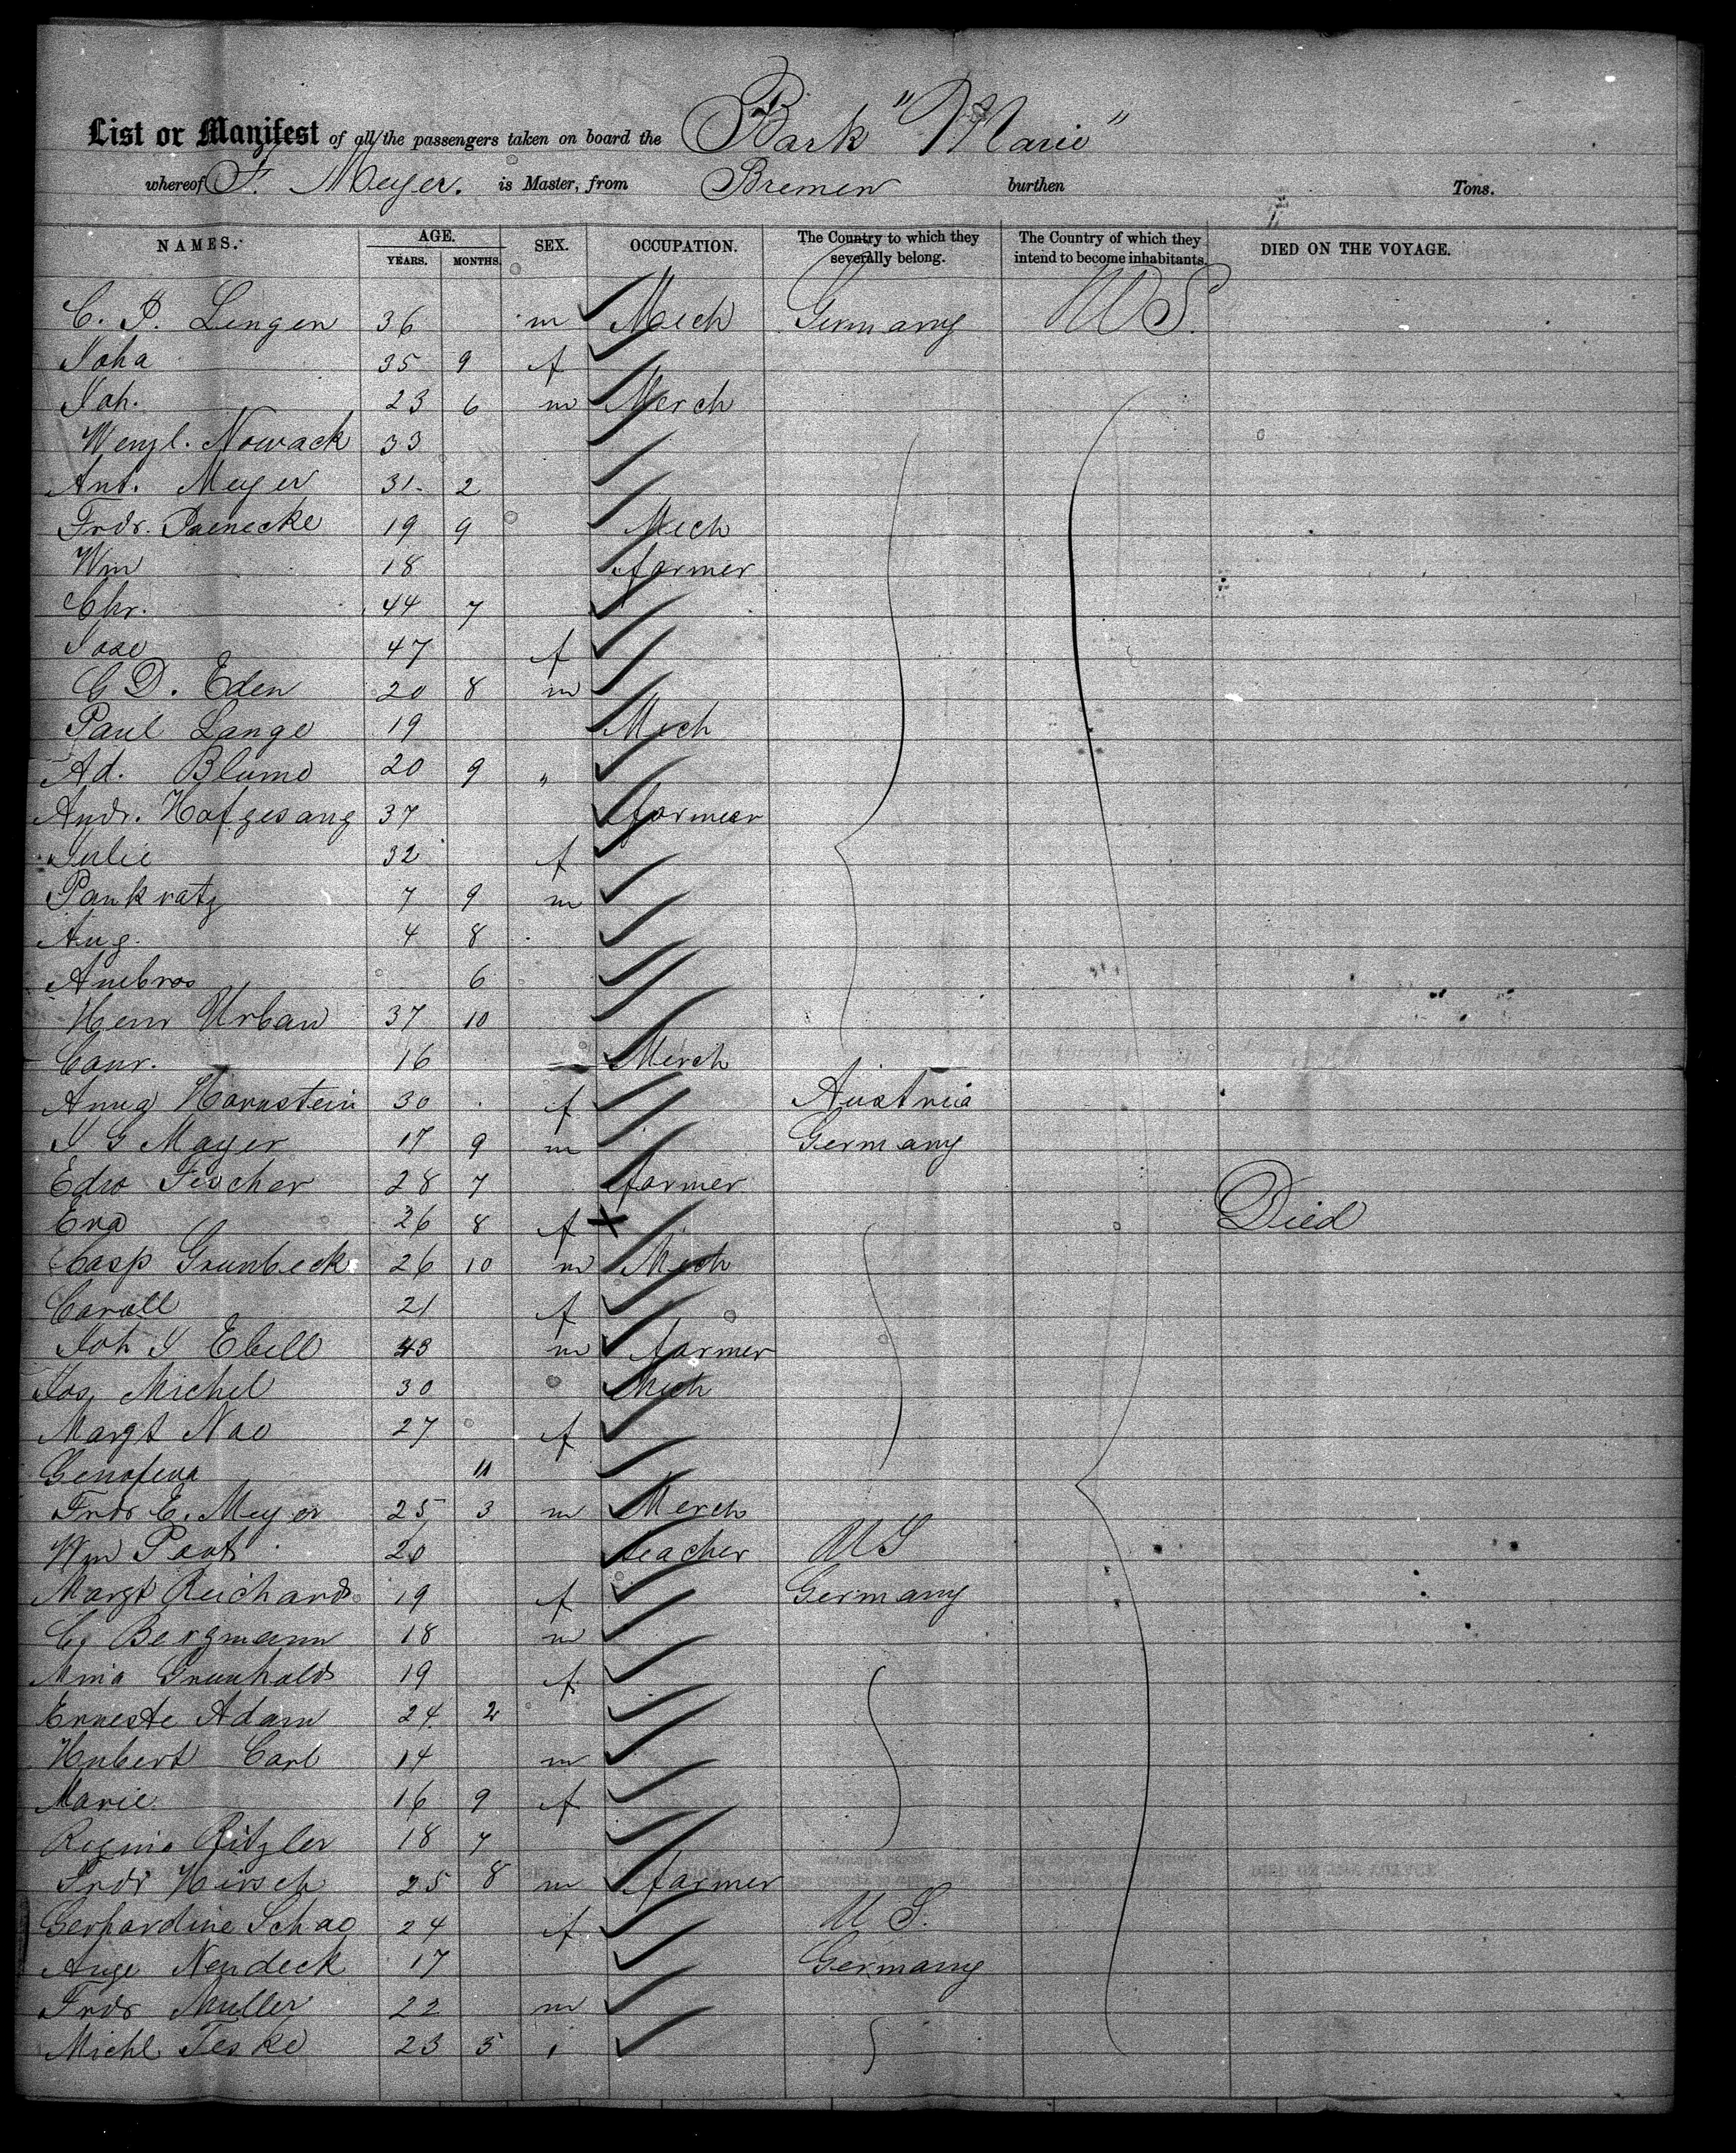 List or Manifest of all the passengers taken on board the Bark "Marie"
whereof F. Meyer. is Master, from Bremen burthen Tons.
NAMES. AGE. SEX. OCCUPATION. The Country to which they severally belong. The Country of which they intend to become inhabitants. DIED ON THE VOYAGE.
YEARS. MONTHS.
C. P. Lingen 36 m Mech Germany US.
Joha 35 9 f
Joh. 23 6 m Merch
Wenzl. Nowack 33
Ant. Meyer 31 2
Frdr. 19 9 Mech
Wm 18 farmer
Chr. 44 7
47 f
G D. Eden 20 8 m
Paul Lange 19 Mech
Ad. Blume 20 9 "
Andr. Hofgesang 37 farmer
Julie 32 f
Pankratz 7 9 m
Aug. 4 8
Ambros 6
Henr Urban 37 10
Conr. 16 Merch
Anna Hornstein 30 f Austria
J G Mayer 17 9 m Germany
Edw Fischer 28 7 farmer
Eva 26 8 f Died
Casp Grunbeck 26 10 m Mech
Caroll 21 f
Joh J Ebell 43 m farmer
Jos Michel 30 Mech
Margt Nao 27 f
Genofeva 11
Frdr E. Meyer 25 3 m Merch
Wm 20 teacher US
Margt Reichard 19 f Germany
Bergmann 18 m
Mina Grunhold 19 f
Erneste Adam 24 2
Hubert Carl 14 m
Marie 16 9 f
Regina Ritzler 18 7
Frdr Hirsch 25 8 m farmer
Gerhardine Schao 24 f US.
Auge Nendeck 17 Germany
Frdr Muller 22 m
Michl Teske 23 5 "